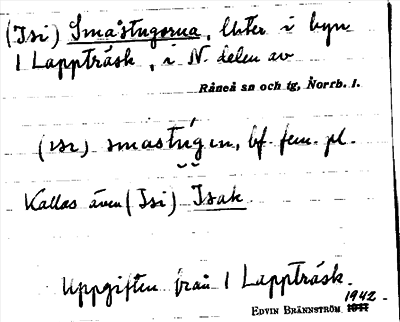 (Isi) Småstugorna, Uster i byn
1 Lappträsk, i N. delen av
Råneå sn och tg, Norrb. l.
(ɪsɩ) smastúgɩn, bf. fem. pl.
Kallas även (Isi) Isak
Uppgiften från 1 Lappträsk.
1942.
EDVIN BRÄNNSTRÖM